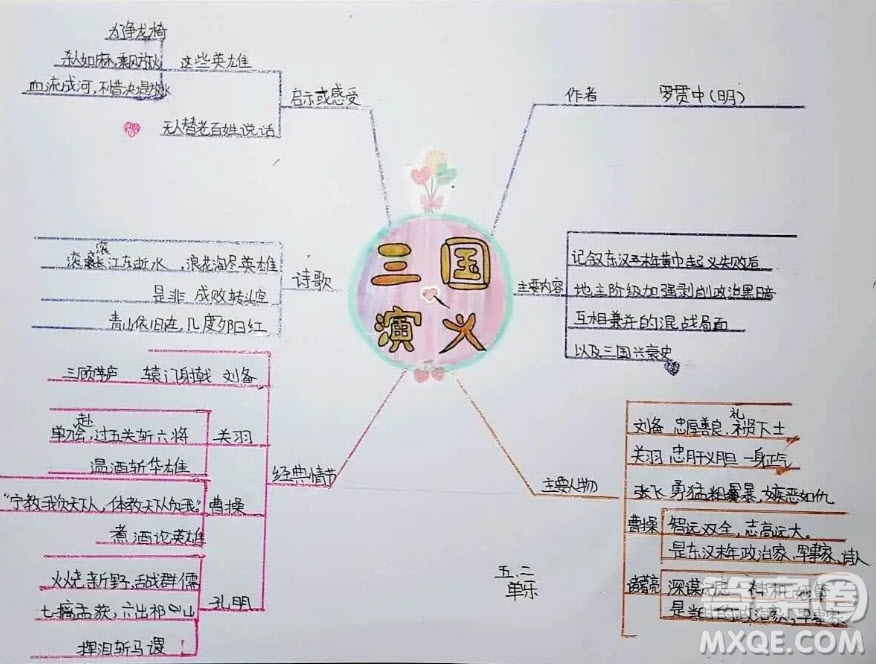 为争龙椅
杀人如麻,乘风放火
血流成河,不惜决堤放水
这些英雄
无人替老百姓说话
启示或感受
作者
罗贯中(明)
三国
演义
诗歌
滚滚长江东逝水,浪花淘尽英雄
是非成败转头空
青山依旧在,几度夕阳红
主要内容
记叙东汉末年黄巾起义失败后
地主阶级加强剥削政治黑暗
互相兼并的混战局面
以及三国兴衰史
经典情节
三顾茅庐 辕门射戟 刘备
单刀赴会,过五关斩六将
温酒斩华雄
关羽
“宁教我负天下人,休教天下人负我”
煮酒论英雄
曹操
火烧新野,舌战群儒
七擒孟获,六出祁山
挥泪斩马谡
孔明
主要人物
刘备 忠厚善良,礼贤下士
关羽 忠肝义胆 一身正气
张飞 勇猛粗暴,嫉恶如仇
曹操 智远双全,志高远大。
是东汉末年政治家,军事家,诗人
诸葛亮 深谋远虑
是当时的政治家,军事家
五.二
单乐
答案圈
MXQE.COM